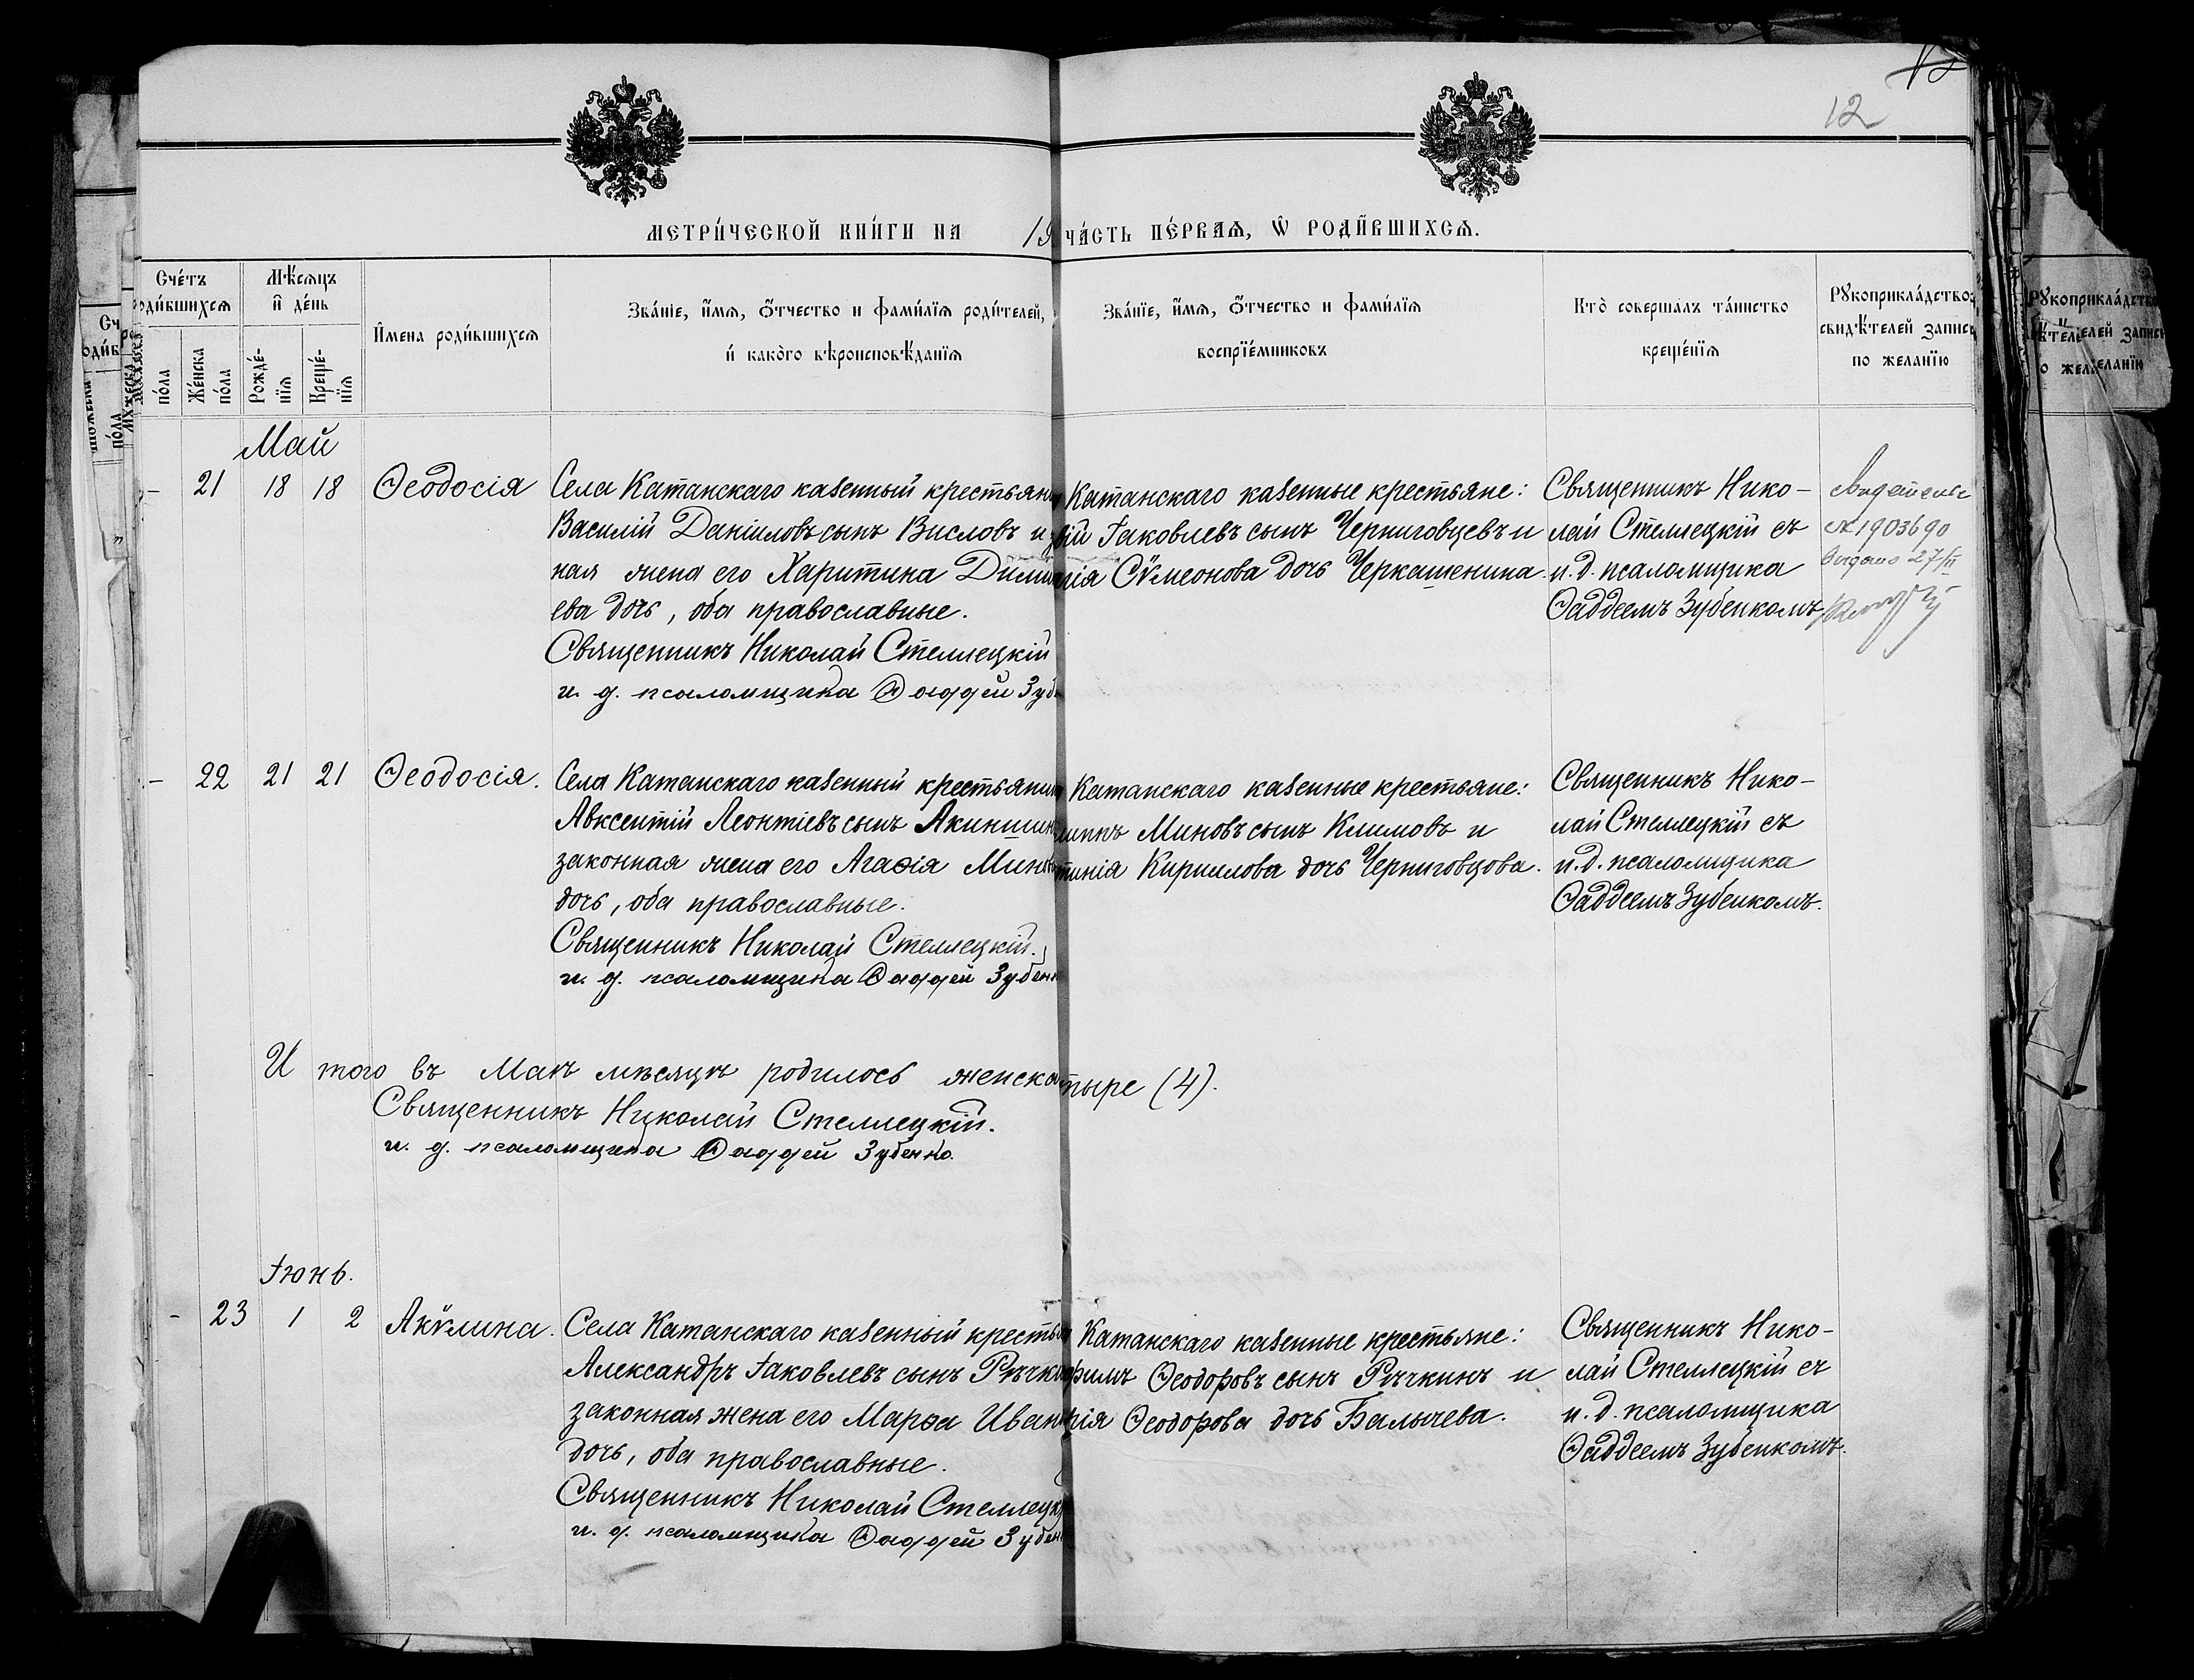 12
МЕТРИ́ЧЕСКОЙ КНИ́ГИ НА 19
ЧА́СТЬ ПЕ́РВАѦ, Ѿ РОДИ́ВШИХСѦ.
Счéтъ
роди́вшихсѧ
Мѣ́сѧцъ
и҆ де́нь
по́ла
Же́нска
по́ла
Рожде́-
нїѧ
Креще́-
нїѧ
И҆мена роди́вшихсѧ
Зва́нїе, и҆́мѧ, ѻ҆́тчество и фами́лїѧ роди́телей,
и҆ како́го вѣроисповѣ́данїѧ
Зва́нїе, и҆́мѧ, ѻ҆́тчество и фами́лїѧ
воспрїе́мниковъ
Кто̀ совершалъ та́инство
креще́нїѧ
Рꙋкоприкла́дство
свидѣ́телей запис
по желанїю
Май
- 21 18 18 Ѳеодосія
Села Катанскаго каѕенный крестьянин
Василій Даніиловъ сынъ Висловъ и з
ная жена его Харитина Дими
ева дочь, оба православные.
Священникъ Николай Стеллецкій
и. д. псаломщика Ѳаддей Зубен
Катанскаго каѕенные крестьяне:
вій Іаковлевъ сынъ Черниговцевъ и
Сѵмеонова дочь Черкашенина.
Священникъ Нико-
лай Стеллецкій съ
и. д. псаломщика
Ѳаддеемъ Зубенкомъ
№ 1903690
выдано 27/II
- 22 21 21 Ѳеодосія.
Села Катанскаго каѕенный крестьянин
Авксентій Леонтіевъ сынъ Акиншинъ
законная жена его Агаѳія Мин
дочь, оба православные.
Священникъ Николай Стеллецкій.
и. д. псаломщика Ѳаддей Зубенк
Катанскаго каѕенные крестьяне:
Миновъ сынъ Климовъ и
Кириллова дочь Черниговцова.
Священникъ Нико-
лай Стеллецкій съ
и. д. псаломщика
Ѳаддеемъ Зубенкомъ.
И того въ Маѣ мѣсяцѣ родилось женска
тыре (4).
Священникъ Николай Стеллецкій.
и. д. псаломщика Ѳаддей Зубенко.
Іюнь.
- 23 1 2 Акѵлина.
Села Катанскаго каѕенный крестья
Александръ Іаковлевъ сынъ Рѣчки
законная жена его Марѳа Иван
дочь, оба православные.
Священникъ Николай Стеллецк
и. д. псаломщика Ѳаддей Зубен
Катанскаго каѕенные крестьяне:
Ѳеодоровъ сынъ Рѣчкинъ и
рія Ѳеодорова дочь Балычева.
Священникъ Нико-
лай Стеллецкій съ
и. д. псаломщика
Ѳаддеемъ Зубенкомъ.